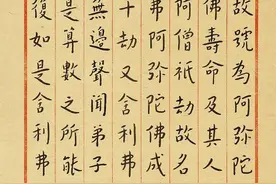 故號為阿彌陀
佛壽命及其人
阿僧祇劫故名
弗阿彌陀佛成
十劫又舍利弗
無邊聲聞弟子
是算數之所能
復如是舍利弗